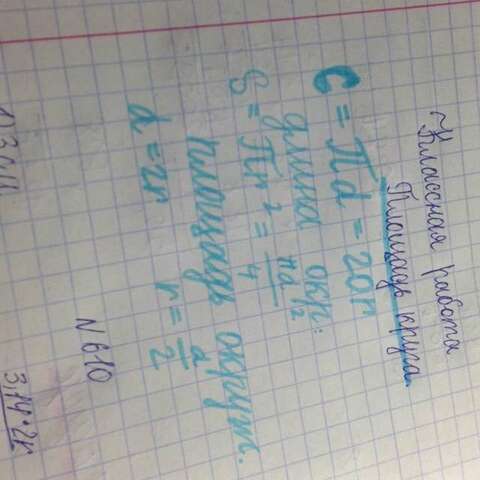 Классная работа
Площадь круга.
C = πd = 2πr
длина окр:
S = πr² = πd²/4
площадь окруж.
d = 2r r = d/2
N 610
3,14 · 2